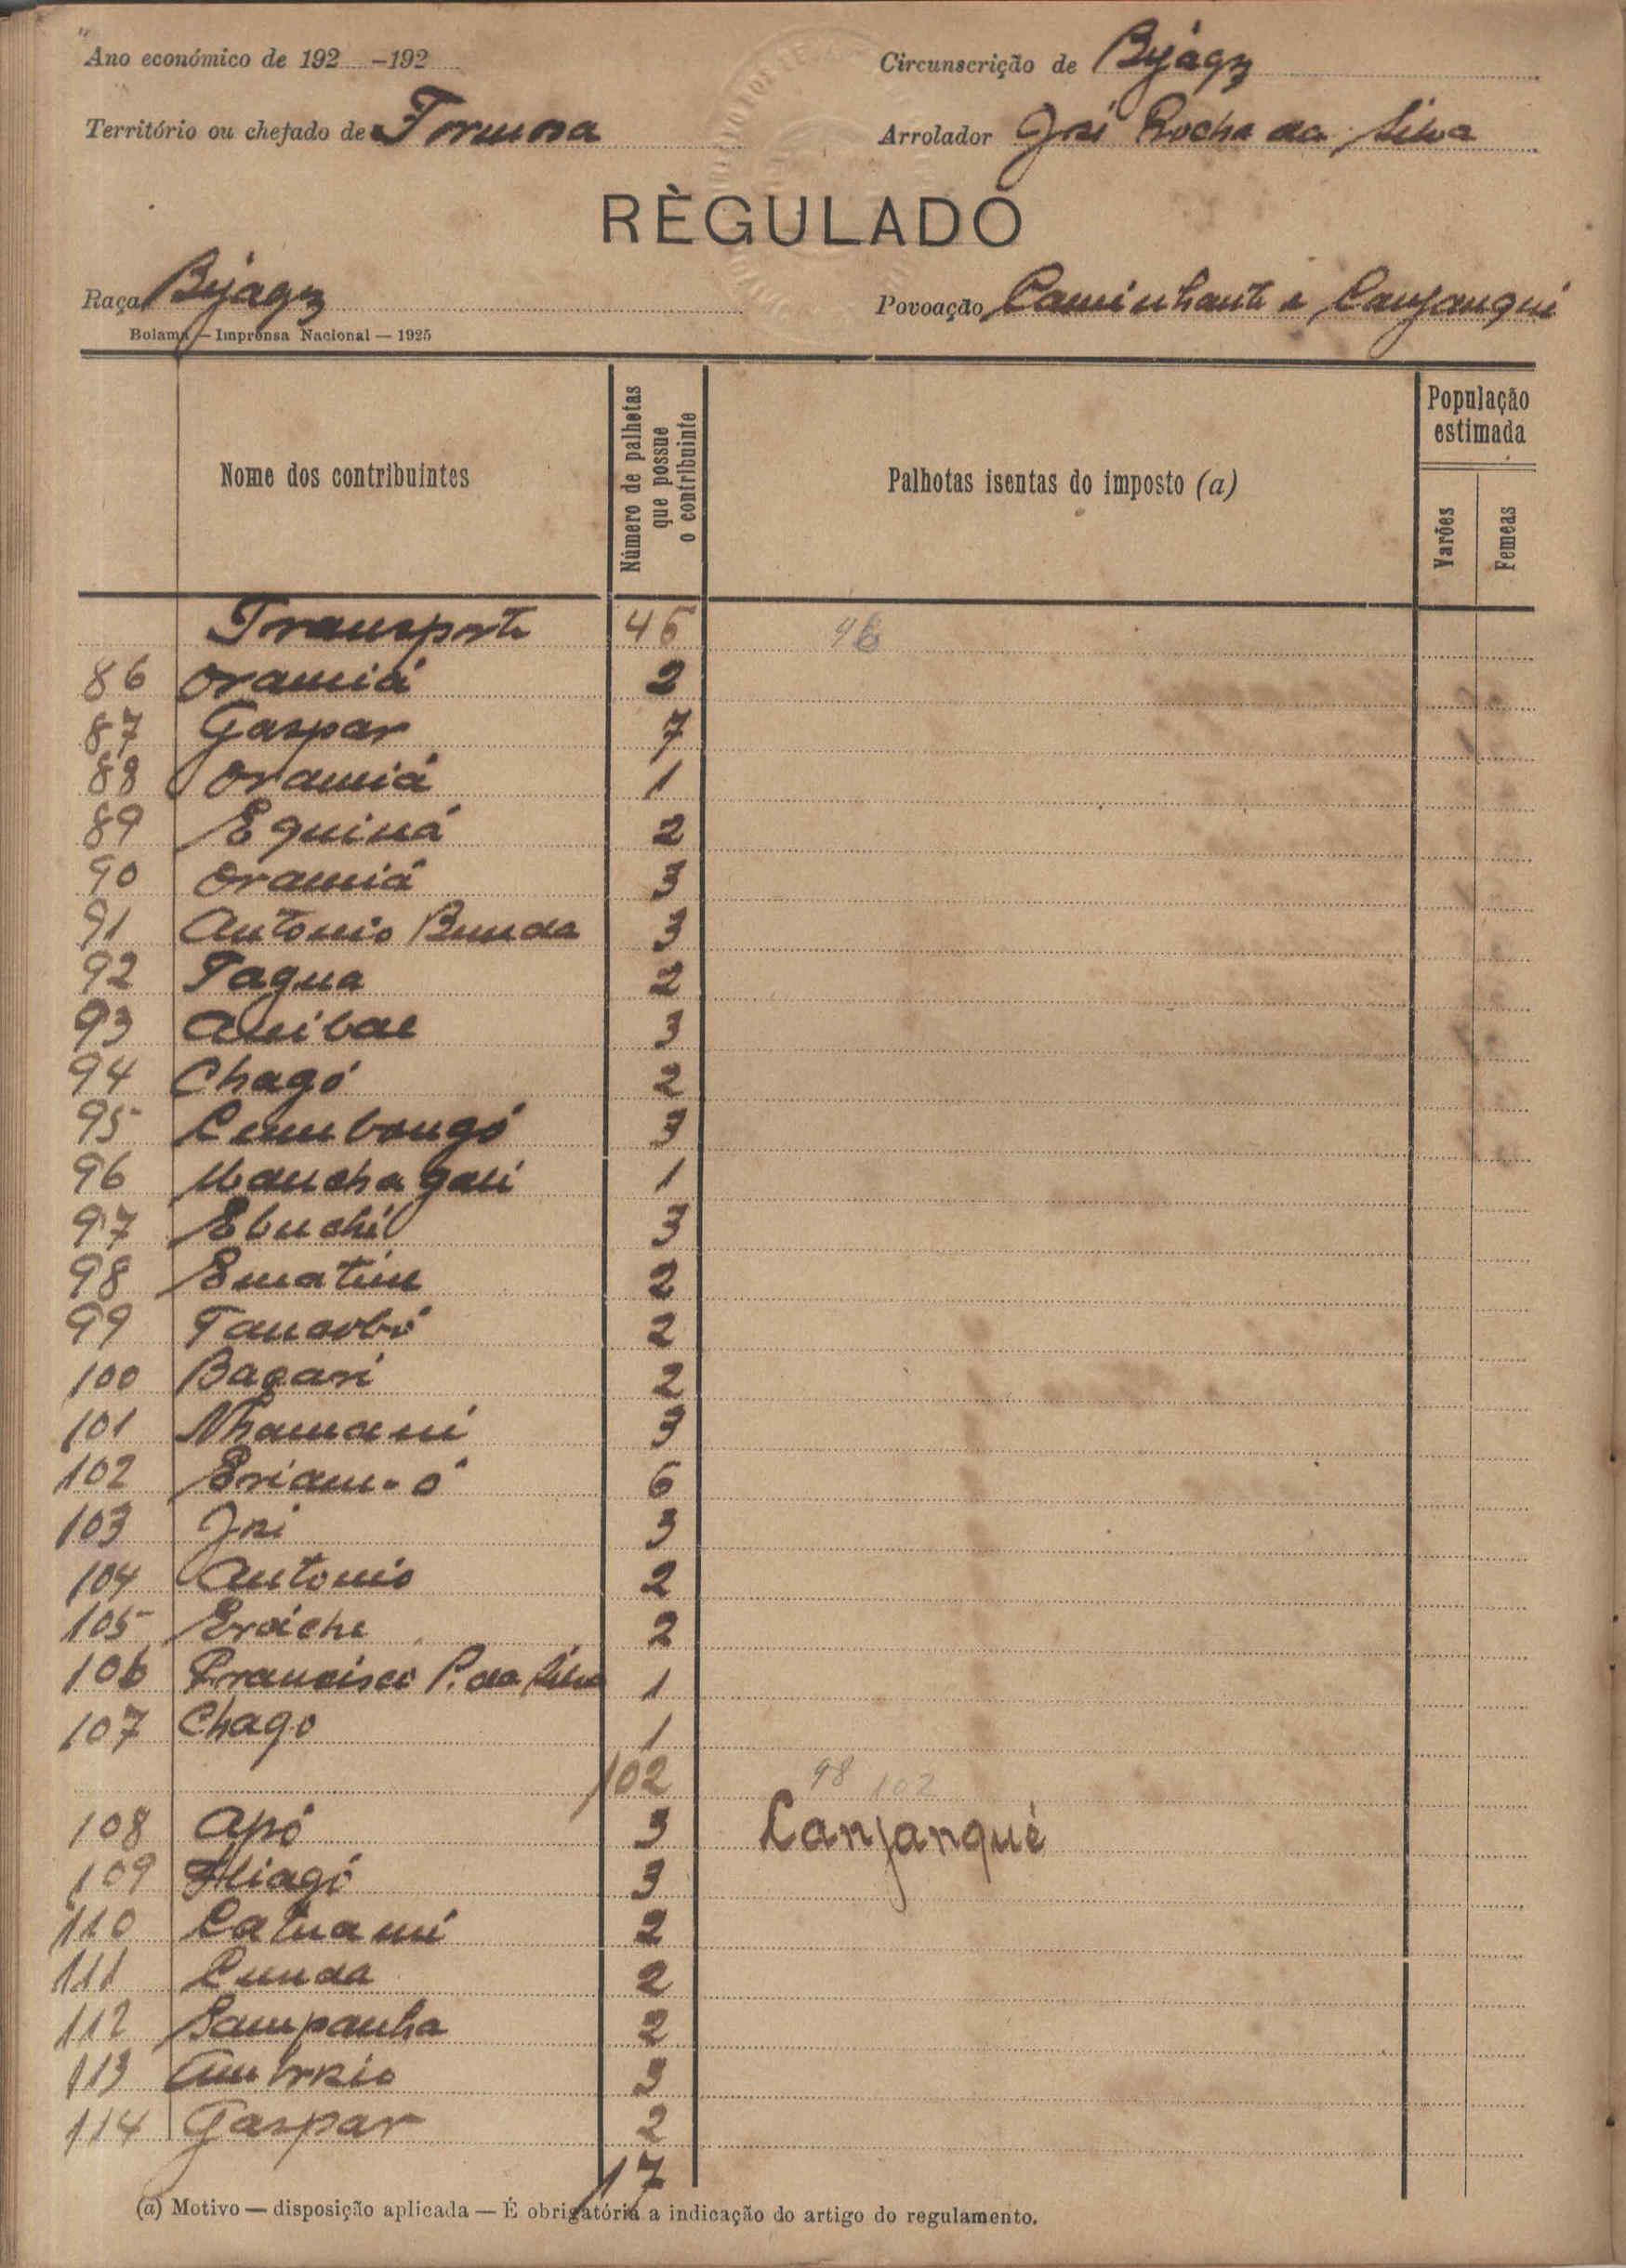 Ano económico de 192 -192
Circunscrição de Bijágz
Território ou chefado de Formosa
Arrolador José Rocha da Silva
RÈGULADO
Raça Bijágz
Povoação Caminhante e Canjanqui
Bolama — Imprensa Nacional — 1925
Nome dos contribuintes
Número de palhetas que possue o contribuinte
Palhotas isentas do imposto (a)
População estimada
Varões
Femeas
Transporte 46 46
86 Oramiá 2
87 Gaspar 7
88 Oramiá 1
89 Equiná 2
90 Oramiá 3
91 Antonio Bunda 3
92 Tagua 2
93 Anibal 3
94 Chagó 2
95 Cumbongó 3
96 Manchagani 1
97 Ebuchi 3
98 Ematim 2
99 2
100 Baçari 2
101 Nhamani 3
102 Eriam-ó 6
103 José 3
104 Antonio 2
105 Eroiche 2
106 Francisco P. da Silva 1
107 Chago 1
102 98 102
108 Apó 3 Canjanqué
109 3
110 Catuani 2
111 Cunda 2
112 Sampanha 2
113 Ambrosio 3
114 Gaspar 2
17
(a) Motivo — disposição aplicada — É obrigatória a indicação do artigo do regulamento.